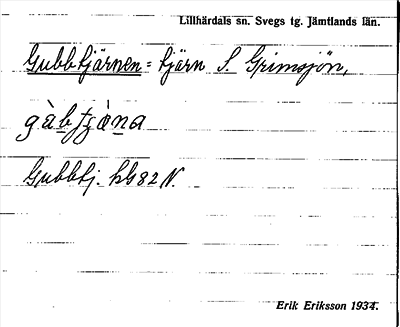 Lillhärdals sn. Svegs tg. Jämtlands län.
Gubbtjärnen = tjärn S. Grimsjön,
Gubbtj. hG82 N.
Erik Eriksson 1934.